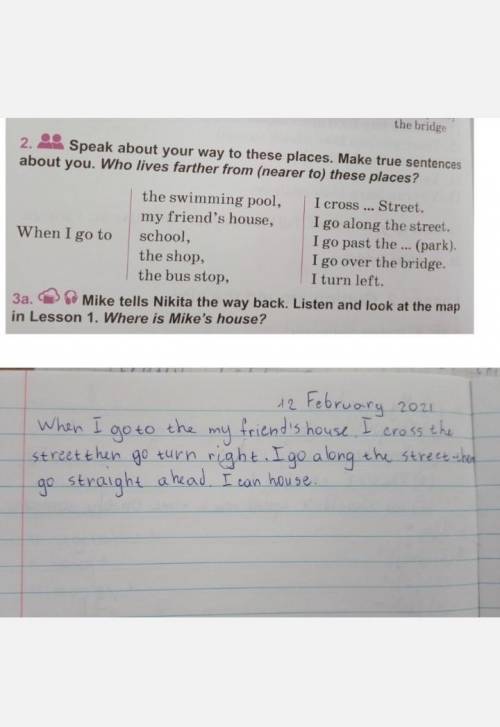 the bridge
2. Speak about your way to these places. Make true sentences
about you. Who lives farther from (nearer to) these places?
When I go to
the swimming pool,
my friend's house,
school,
the shop,
the bus stop,
I cross ... Street.
I go along the street.
I go past the ... (park).
I go over the bridge.
I turn left.
3a. Mike tells Nikita the way back. Listen and look at the map
in Lesson 1. Where is Mike's house?
12 February 2021
When I go to the my friend's house, I cross the
street then go turn right. I go along the street then
go straight ahead. I can house.